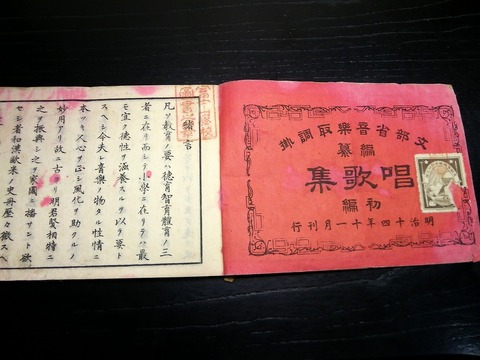 文部省音樂取調掛
編纂
唱歌集
初編
明治十四年十一月刊行
緒言
凡ソ教育ノ要ハ德育智育體育ノ三
者ニ在リ而シテ小學ニ在リテハ最
モ宜ク德性ヲ涵養スルヲ以テ要ト
スヘシ今夫レ音樂ノ物タル性情ニ
本ツキ人心ヲ正シ風化ヲ助クルノ
妙用アリ故ニ古ヨリ明君賢相特ニ
之ヲ振興シ之ヲ家國ニ播サント欲
セシ者和漢歐米ノ史冊歴々徴スヘ